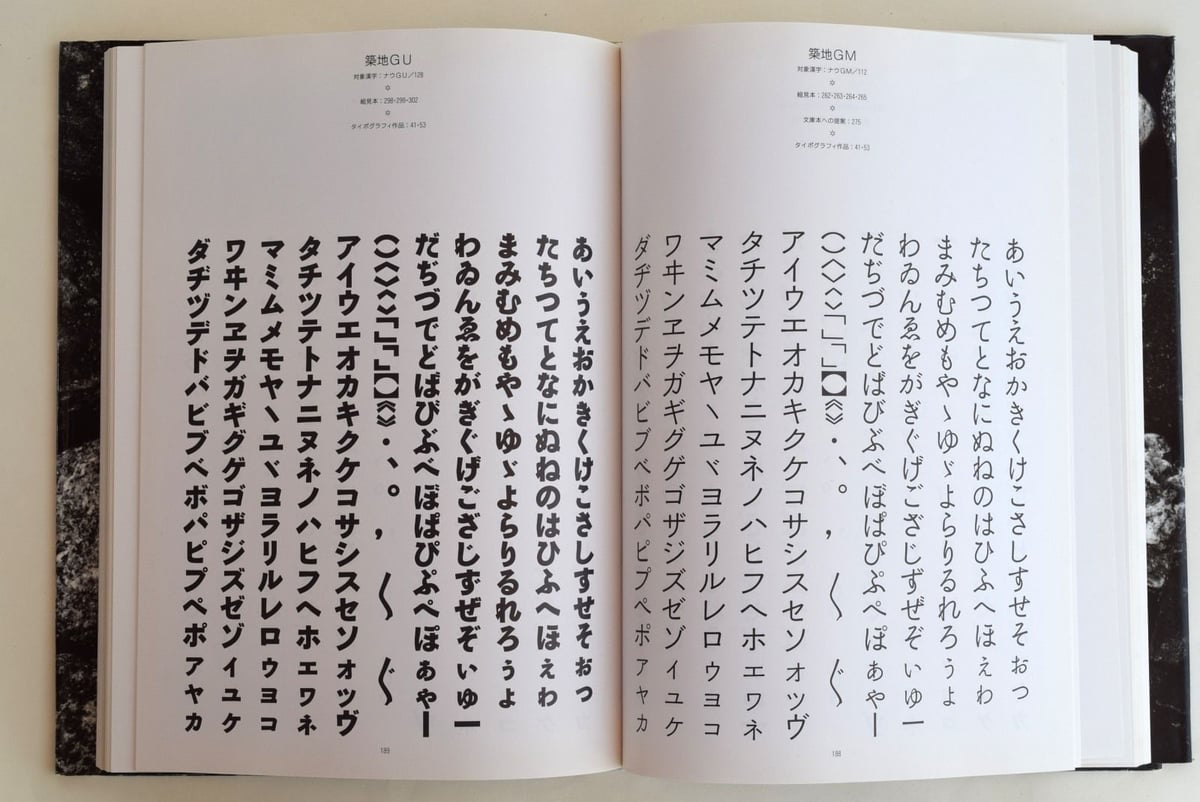 築地GM
対象漢字：ナウGM／112
✡
組見本：262・263・264・265
✡
文庫本への提案：275
✡
タイポグラフィ作品：41・53
あいうえおかきくけこさしすせそぉっ
たちつてとなにぬねのはひふへほぇゎ
まみむめもやゝゆゞよらりるれろぅょ
わゐんゑをがぎぐげござじずぜぞぃゅー
だぢづでどばびぶべぼぱぴぷぺぽぁゃー
（）〈〉〈〉「」「」【】《》・、。，〱〲
アイウエオカキクケコサシスセソォッヴ
タチツテトナニヌネノハヒフヘホェヮネ
マミムメモヤヽユヾヨラリルレロゥョコ
ワヰンヱヲガギグゲゴザジズゼゾィュケ
ダヂヅデドバビブベボパピプペポァャカ
188
築地GU
対象漢字：ナウGU／128
✡
組見本：298・299・302
✡
タイポグラフィ作品：41・53
あいうえおかきくけこさしすせそぉっ
たちつてとなにぬねのはひふへほぇゎ
まみむめもやゝゆゞよらりるれろぅょ
わゐんゑをがぎぐげござじずぜぞぃゅー
だぢづでどばびぶべぼぱぴぷぺぽぁゃー
（）〈〉〈〉「」「」【】《》・、。，〱〲
アイウエオカキクケコサシスセソォッヴ
タチツテトナニヌネノハヒフヘホェヮネ
マミムメモヤヽユヾヨラリルレロゥョコ
ワヰンヱヲガギグゲゴザジズゼゾィュケ
ダヂヅデドバビブベボパピプペポァャカ
189